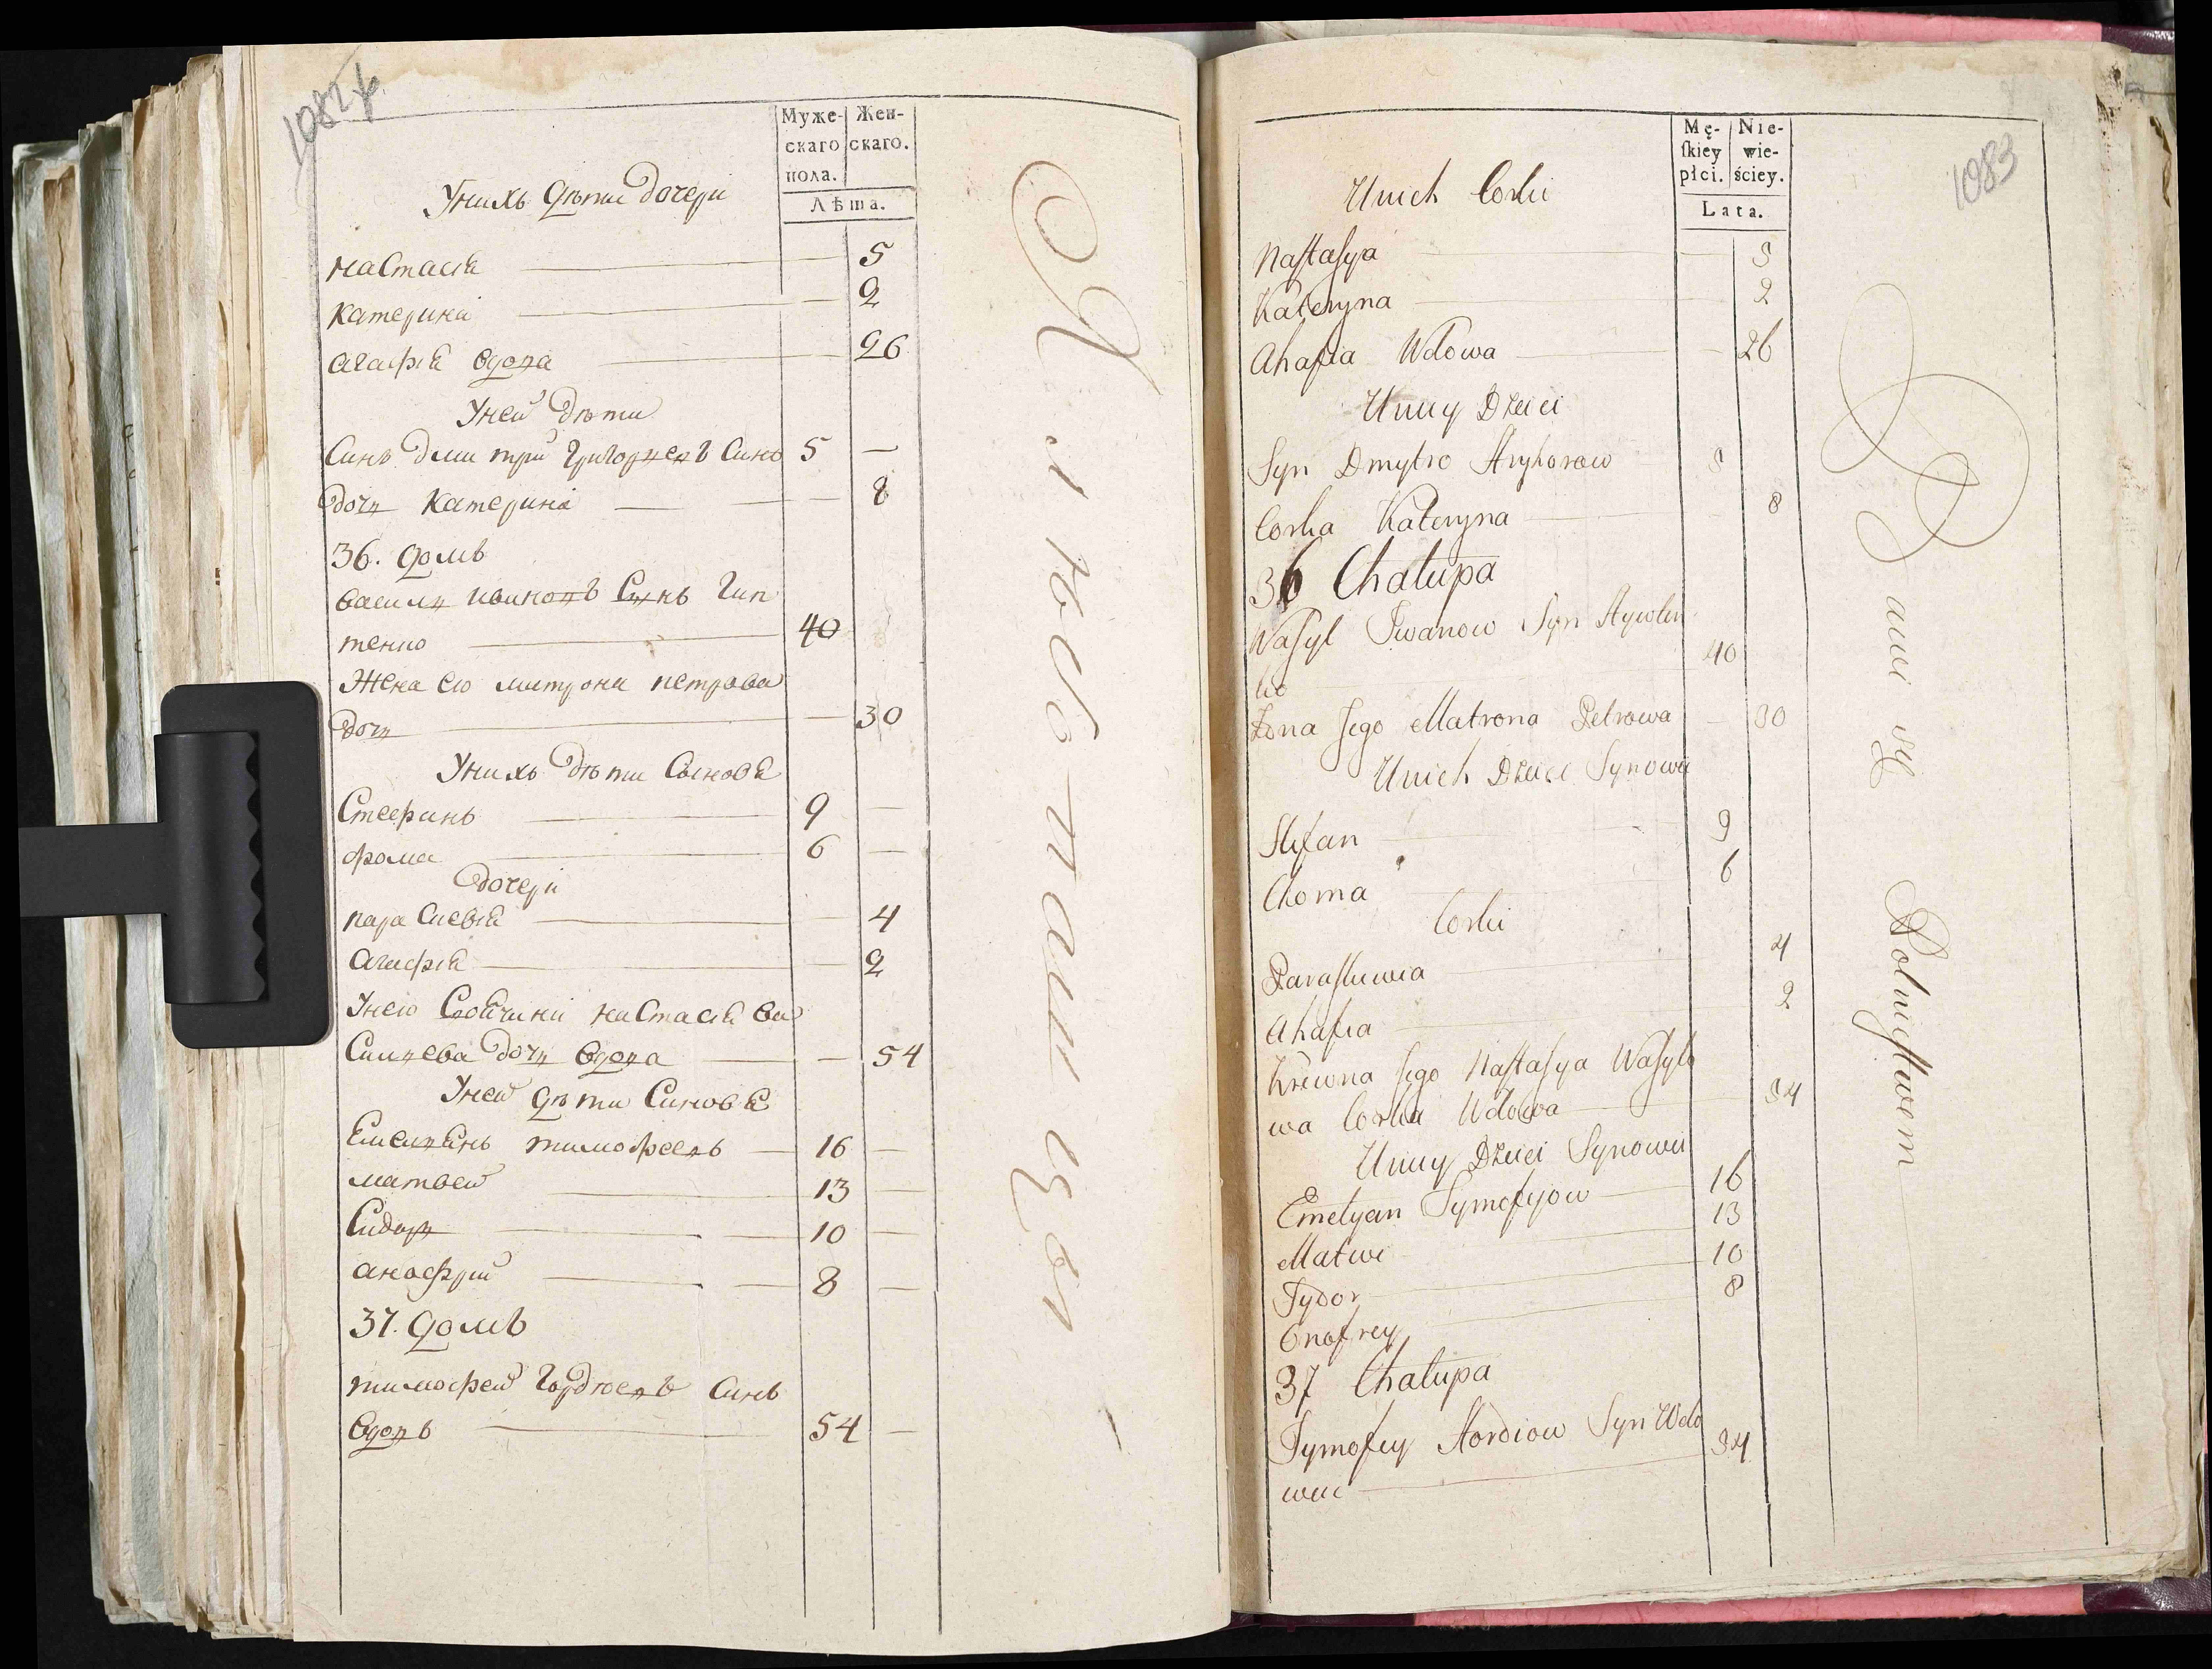 1082
Муже-
скаго
пола.
Жен-
скаго.
Лѣта.
Унихъ дѣти дочери
настасiя 5
катерина 2
агафiя вдова 26
Уней дѣти
Синъ дмитри григоривъ Синъ 5 —
дочь катерина 8
36. домъ
василь ивановъ Синъ Гип
тенко 40
Жена ею матрона петрова
дочь 30
Унихъ дѣти Сынове
Стефанъ 9 —
фома 6 —
дочери
параскевiя 4
агафiя 2
настасiя ва
Силиева дочь вдова 54
Уней дѣти Синове
Емелиянъ тимофеевъ 16 —
матвей 13 —
Сидоръ 10 —
анофрий 8 —
37. домъ
тимофей Гордiевъ Синъ
вдовъ 54 —
1083
Mę-
ſkiey
płci.
Nie-
wie-
ściey.
Lata.
Unich Corki
Naſtaſya 5
Kateryna 2
Ahafia Wdowa 26
Uniiy Dzieci
Syn Dmytro Hryhorow 5
Corka Kateryna 8
36 Chałupa
Waſyl Iwanow Syn
ko 40
Zona Jego Matrona Petrowa 30
Unich Dzieci Synowie
Stefan 9
Choma 6
Corki
Paraſkiewia 4
Ahafia 2
Krewna Jego Naſtaſya Waſylo
wa Corka Wdowa 54
Uniiy Dzieci Synowie
Emelyan Tymofijow 16
Matwi 13
Sydor 10
Onofrey 8
37 Chałupa
Tymofiey Hordiow Syn Wdo
wiec 54
Rolnictwem